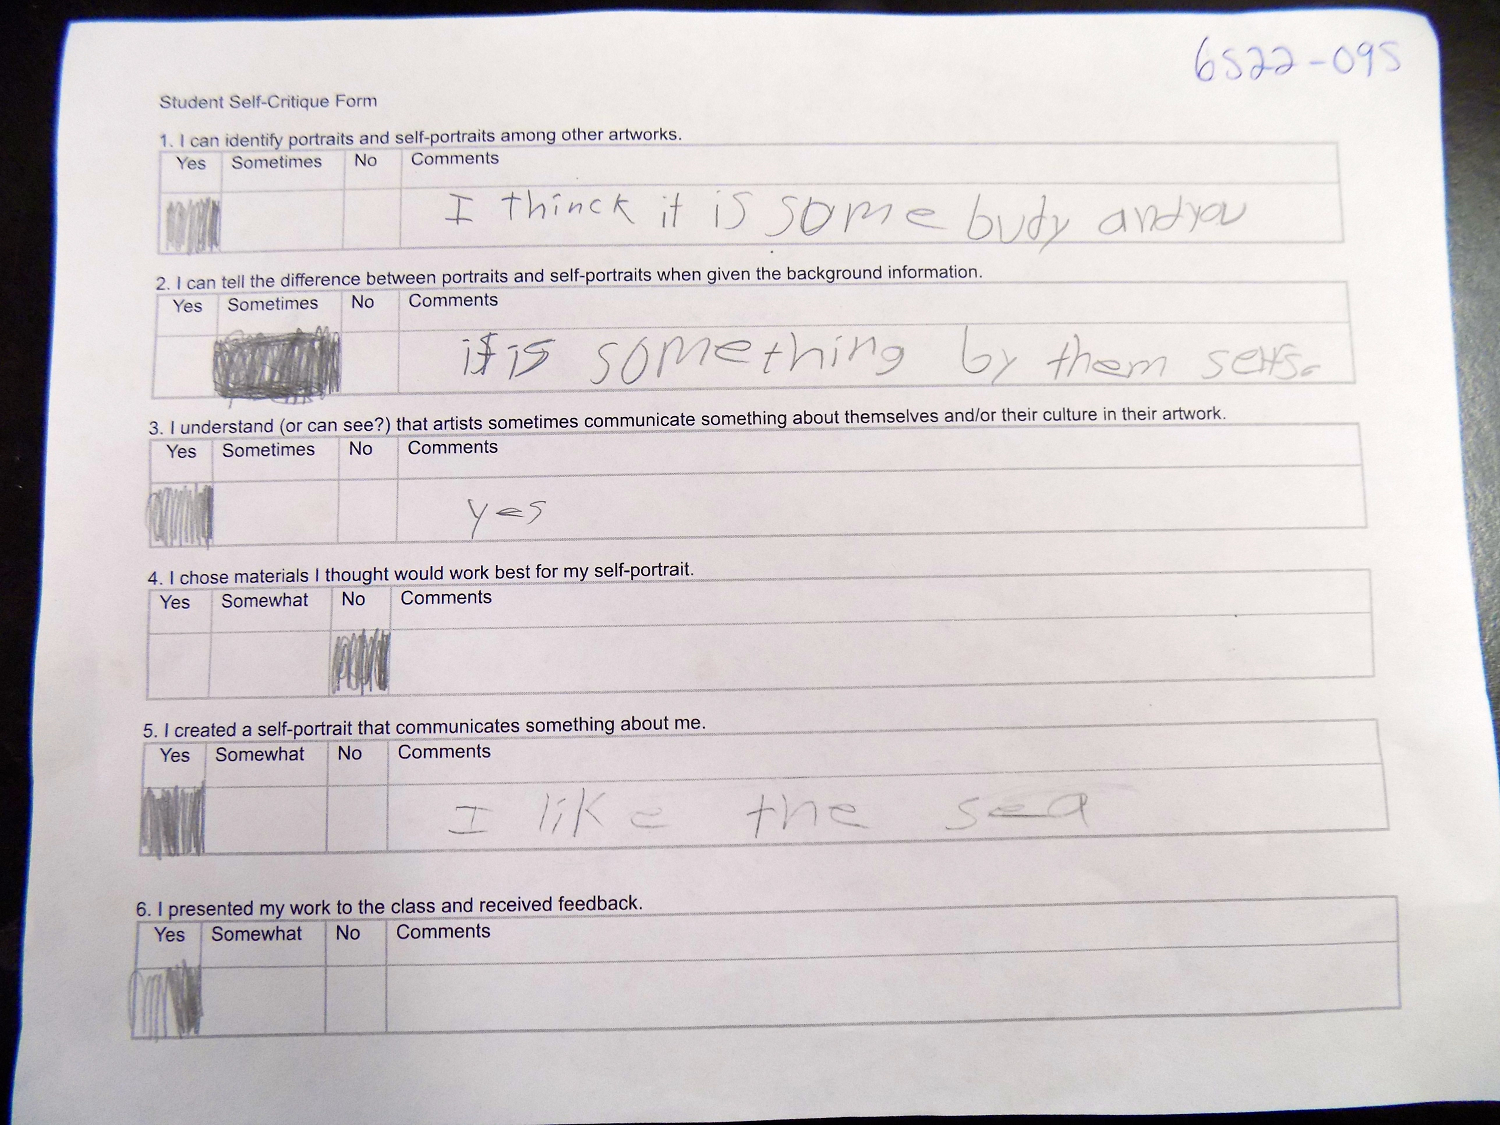 6S22-095
Student Self-Critique Form
1. I can identify portraits and self-portraits among other artworks.
Yes Sometimes No Comments
I thinck it is some budy and you
2. I can tell the difference between portraits and self-portraits when given the background information.
Yes Sometimes No Comments
it is something by them
3. I understand (or can see?) that artists sometimes communicate something about themselves and/or their culture in their artwork.
Yes Sometimes No Comments
yes
4. I chose materials I thought would work best for my self-portrait.
Yes Somewhat No Comments
5. I created a self-portrait that communicates something about me.
Yes Somewhat No Comments
I like the sea
6. I presented my work to the class and received feedback.
Yes Somewhat No Comments